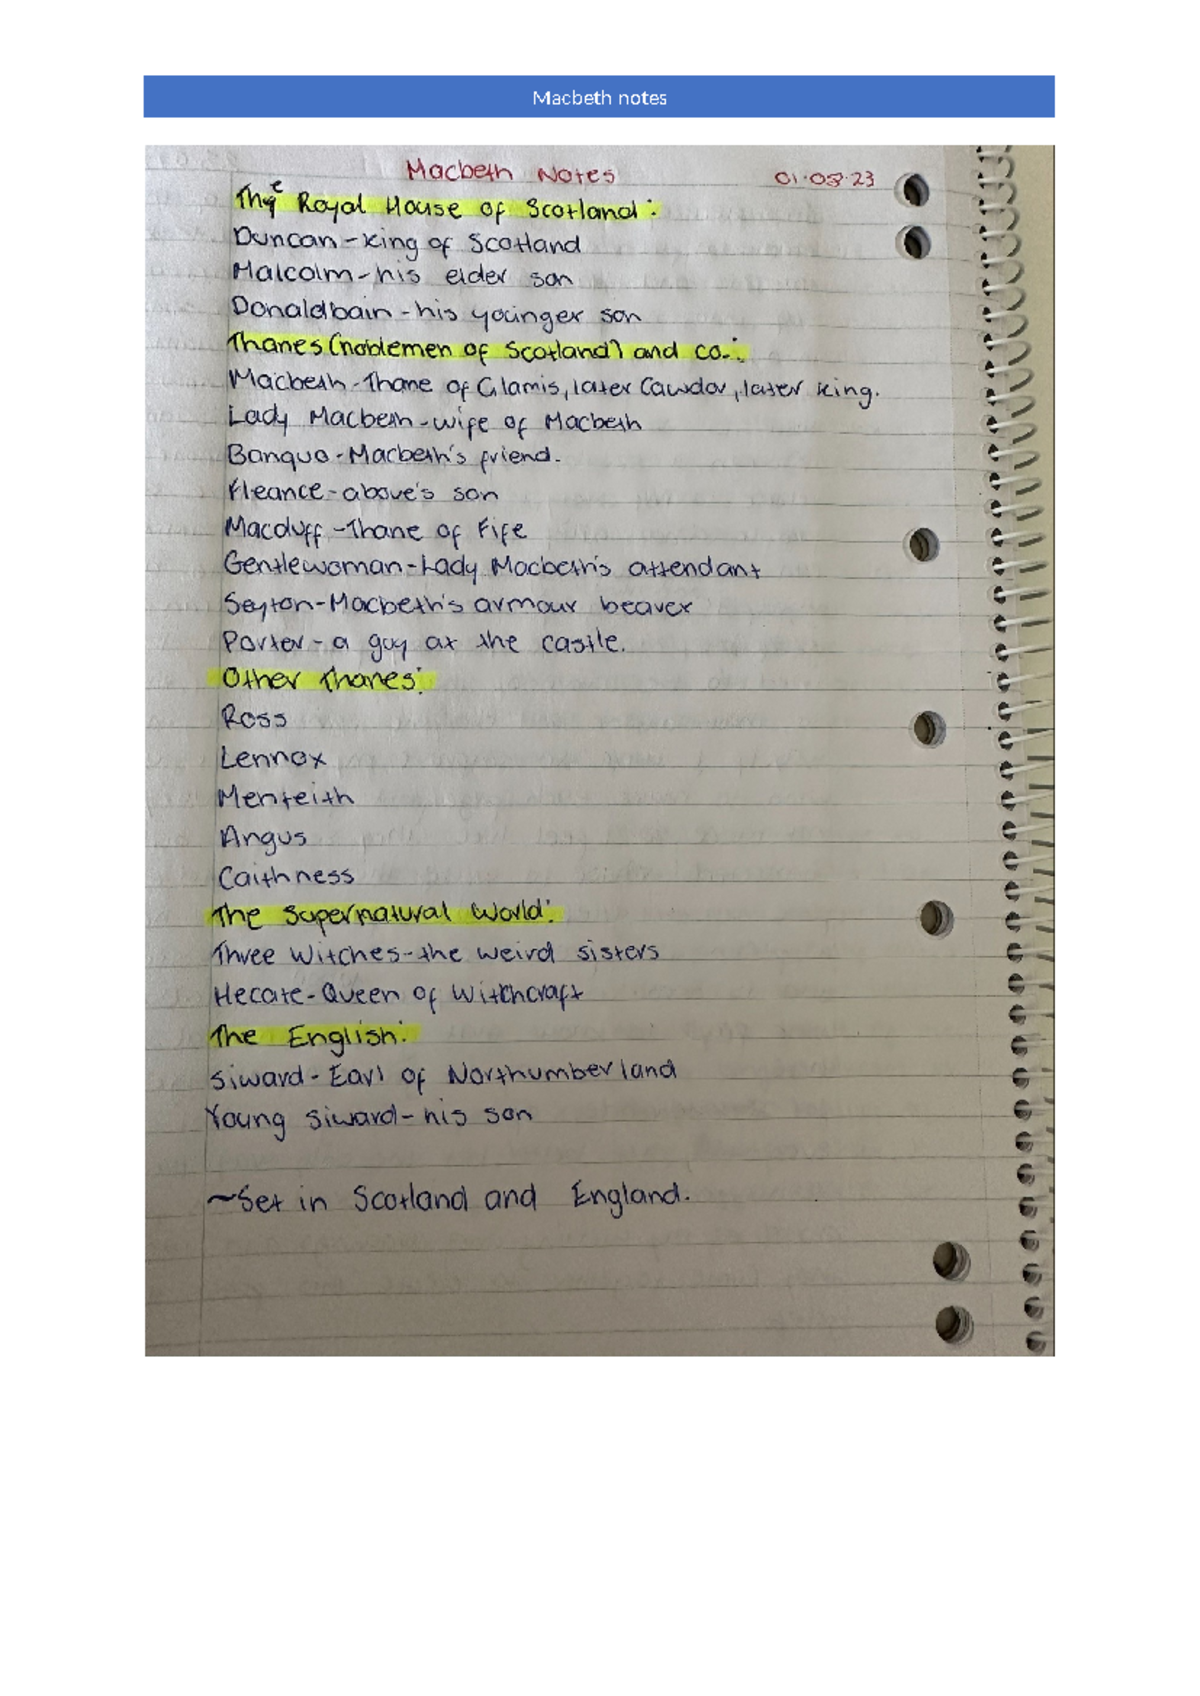 Macbeth notes
Macbeth Notes 01.08.23
The Royal House of Scotland:
Duncan-King of Scotland
Malcolm-his elder son
Donaldbain-his younger son
Thanes (noblemen of Scotland) and co.:
Macbeth-Thane of Glamis, later Cawdor, later king.
Lady Macbeth-wife of Macbeth
Banquo-Macbeth's friend.
Fleance-above's son
Macduff-Thane of Fife
Gentlewoman-Lady Macbeth's attendant
Seyton-Macbeth's armour beaver
Porter-a guy at the castle.
Other Thanes:
Ross
Lennox
Menteith
Angus
Caithness
The Supernatural World:
Three Witches-the weird sisters
Hecate-Queen of Witchcraft
The English:
Siward-Earl of Northumberland
Young Siward-his son
~Set in Scotland and England.